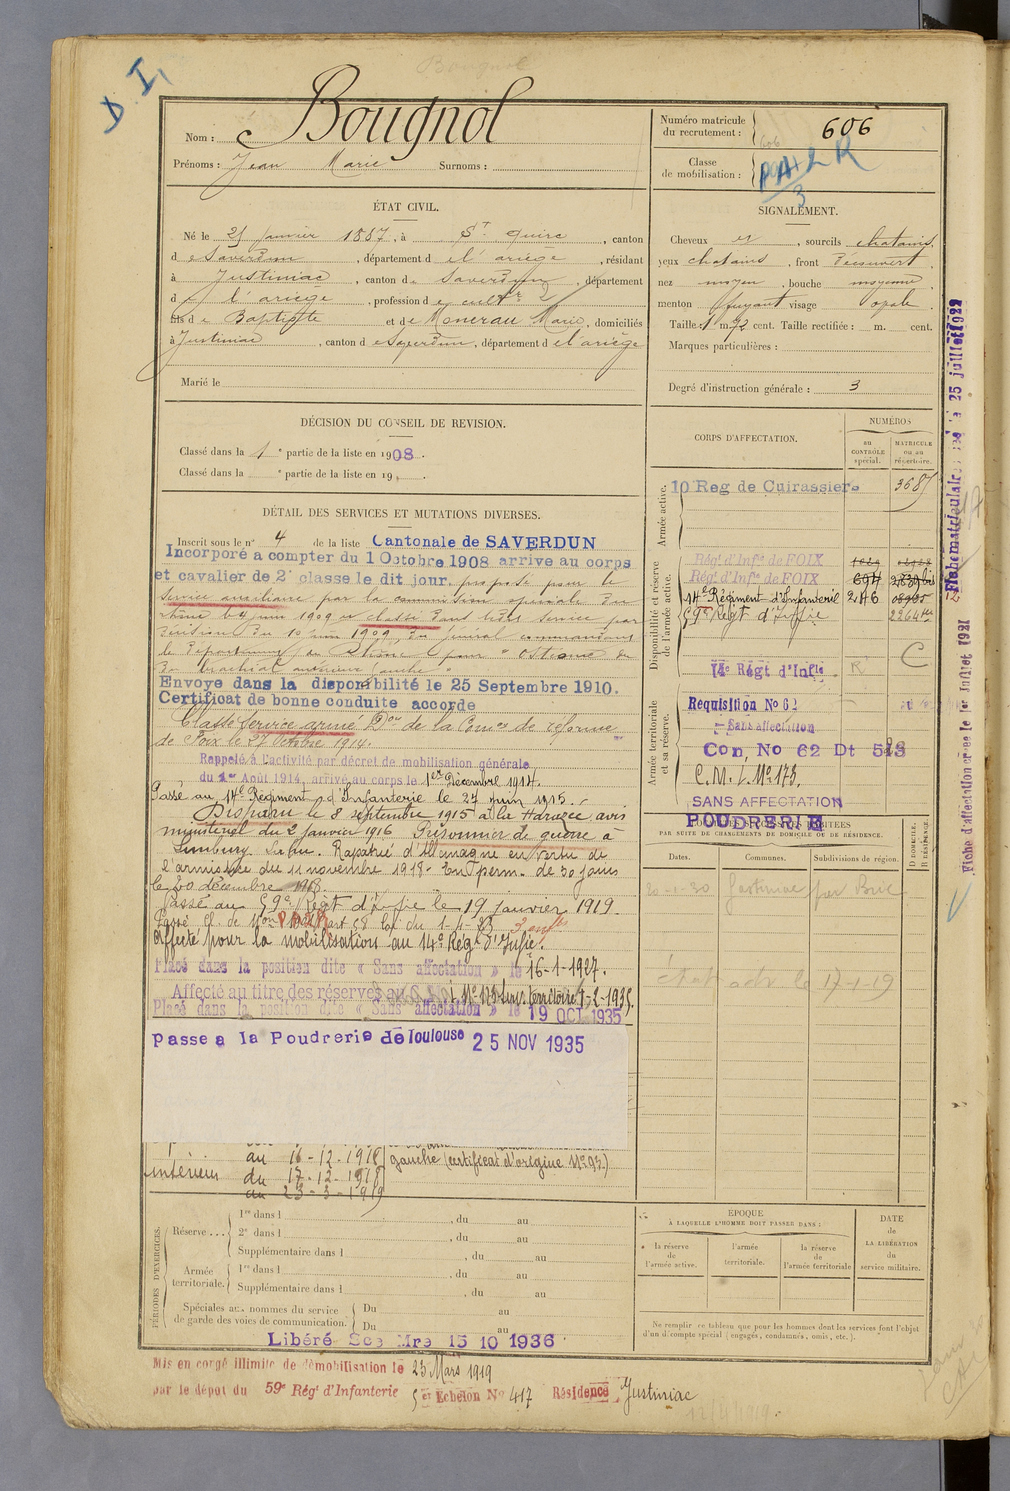 Bougnol
D I,
Nom : Bougnol
Prénoms : Jean Marie Surnoms :
Numéro matricule
du recrutement : 606
606
Classe
de mobilisation :
3
ÉTAT CIVIL.
Né le 21 janvier 1887, à St Quirc, canton
de Saverdun, département de l'ariège, résidant
à Justiniac, canton de Saverdun, département
de l'ariège, profession de cultr 2
fils de Baptiste et de Monerau Marie, domiciliés
à Justiniac, canton de Saverdun, département de l'ariège
Marié le
SIGNALEMENT.
Cheveux et, sourcils chatains,
yeux chatains, front Découvert,
nez moyen, bouche moyenne,
menton fuyant visage opale
Taille 1 m 72 cent. Taille rectifiée : m. cent.
Marques particulières :
Degré d'instruction générale : 3
DÉCISION DU CONSEIL DE REVISION.
Classé dans la 1e partie de la liste en 1908.
Classé dans la e partie de la liste en 19 .
DÉTAIL DES SERVICES ET MUTATIONS DIVERSES.
Inscrit sous le n° 4 de la liste Cantonale de SAVERDUN
Incorporé a compter du 1 Octobre 1908 arrivé au corps
et cavalier de 2e classe le dit jour. proposé pour le
service auxiliaire par la commission spéciale du
Rhône le 4 juin 1909 classé dans services par
décision du 10 juin 1909 du général commandant
le Département du Rhône pour "ostéome du
brachial antérieur gauche"
Envoye dans la disponibilité le 25 Septembre 1910.
Certificat de bonne conduite accorde
Classé Service armé Don de la Comon de réforme
de Foix le 27 Octobre 1914.
Rappelé à l'activité par décret de mobilisation générale
du 1er Août 1914, arrivé au corps le 1er Décembre 1914.
Passé au 14e Régiment d'Infanterie le 27 juin 1915.
Disparu le 8 septembre 1915 à la Harazée, avis
ministériel du 2 janvier 1916 Prisonnier de guerre à
Limburg Lahn. Rapatrié d'Allemagne en vertu de
l'armistice du 11 novembre 1918. En perm. de 30 jours
le 20 décembre 1918.
Passé au 59e Régt d'Infie le 19 janvier 1919.
Passé Cl. de Mon art 58 loi du 1-4-23 3 enfts
Affecté pour la mobilisation au 14e Régt d'Infie.
Placé dans la position dite « Sans affectation » le 16-1-1927.
Affecté au titre des réserves
Placé dans la position dite « Sans affectation » le 19 OCT 1935
Passe a la Poudrerie de Toulouse 25 NOV 1935
au 16-12-1918 gauche (certificat d'origine N° 93.)
intérieur du 17-12-1918
au 23-3-1919
CORPS D'AFFECTATION.
NUMÉROS
au
CONTRÔLE
spécial.
MATRICULE
ou au
répertoire.
Armée active.
10 Reg de Cuirassiers 3687
Disponibilité et réserve
de l'armée active.
Régt d'Infie de FOIX
Régt d'Infie de FOIX
14e Régiment d'Infanterie 246
59e Régt d'Infie
C
14e Régt d'Infie R
Armée territoriale
et sa réserve.
Requisition No 62
Sans affectation
Con, No 62 Dt
C.M.I. N° 173.
SANS AFFECTATION
POUDRERIE
PAR SUITE DE CHANGEMENTS DE DOMICILE OU DE RÉSIDENCE.
Dates. Communes. Subdivisions de région.
D DOMICILE.
R RÉSIDENCE.
20-1-30 Justiniac par Brie
17-1-29
PÉRIODES D'EXERCICES.
Réserve ...
1re dans l , du au
2e dans l , du au
Supplémentaire dans l , du au
Armée
territoriale.
1re dans l , du au
Supplémentaire dans l , du au
Spéciales aux hommes du service
de garde des voies de communication.
Du au
Du au
Libéré Sce Mre 15 10 1936
ÉPOQUE
À LAQUELLE L'HOMME DOIT PASSER DANS :
la réserve
de
l'armée active.
l'armée
territoriale.
la réserve
de
l'armée territoriale
DATE
de
LA LIBÉRATION
du
service militaire.
Ne remplir ce tableau que pour les hommes dont les services font l'objet
d'un décompte spécial (engagés, condamnés, omis, etc.).
Mis en congé illimité de démobilisation le 23 Mars 1919
par le dépôt du 59e Régt d'Infanterie 5er Echelon No 417 Résidence Justiniac
Fiche d'affectation créée le 1er Juillet 1921